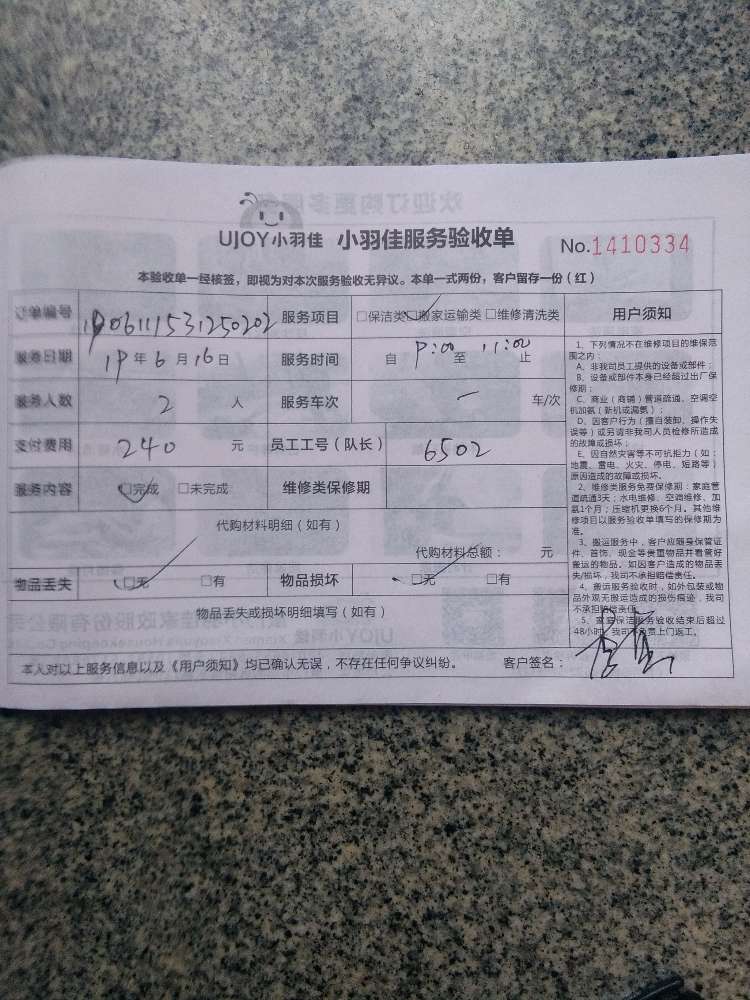 UJOY小羽佳 小羽佳服务验收单 No.1410334
本验收单一经核签，即视为对本次服务验收无异议。本单一式两份，客户留存一份（红）
订单编号 1906111531250202 服务项目 □保洁类□搬家运输类□维修清洗类
服务日期 19年6月16日 服务时间 自 9:00 至 11:00 止
服务人数 2 人 服务车次 一 车/次
支付费用 240 元 员工工号（队长） 6502
服务内容 □完成 □未完成 维修类保修期
代购材料明细（如有）
代购材料总额： 元
物品丢失 □无 □有 物品损坏 □无 □有
物品丢失或损坏明细填写（如有）
本人对以上服务信息以及《用户须知》均已确认无误，不存在任何争议纠纷。 客户签名：
用户须知
1、下列情况不在维修项目的维保范
围之内：
A、非我司员工提供的设备或部件；
B、设备或部件本身已经超过出厂保
修期；
C、商业（商铺）管道疏通、空调空
机加氨（新机或漏氨）；
D、因客户行为（擅自装卸、操作失
误等）或另请非我司人员检修所造成
的故障或损坏；
E、因自然灾害等不可抗拒力（如：
地震、雷电、火灾、停电、短路等）
原因造成的故障或损坏。
2、维修类服务免费保修期：家庭管
道疏通3天；水电维修、空调维修、加
氨1个月；压缩机更换6个月。其他维
修项目以服务验收单填写的保修期为
准。
3、搬运服务中，客户应随身保管证
件、首饰、现金等贵重物品并看管好
搬运的物品。如因客户造成的物品丢
失/损坏，我司不承担赔偿责任。
4、搬运服务验收时，如外包装或物
品外观无搬运造成的损伤痕迹，我司
不承担赔偿责任。
5、家庭保洁服务验收结束后超过
48小时，我司不负责上门返工。